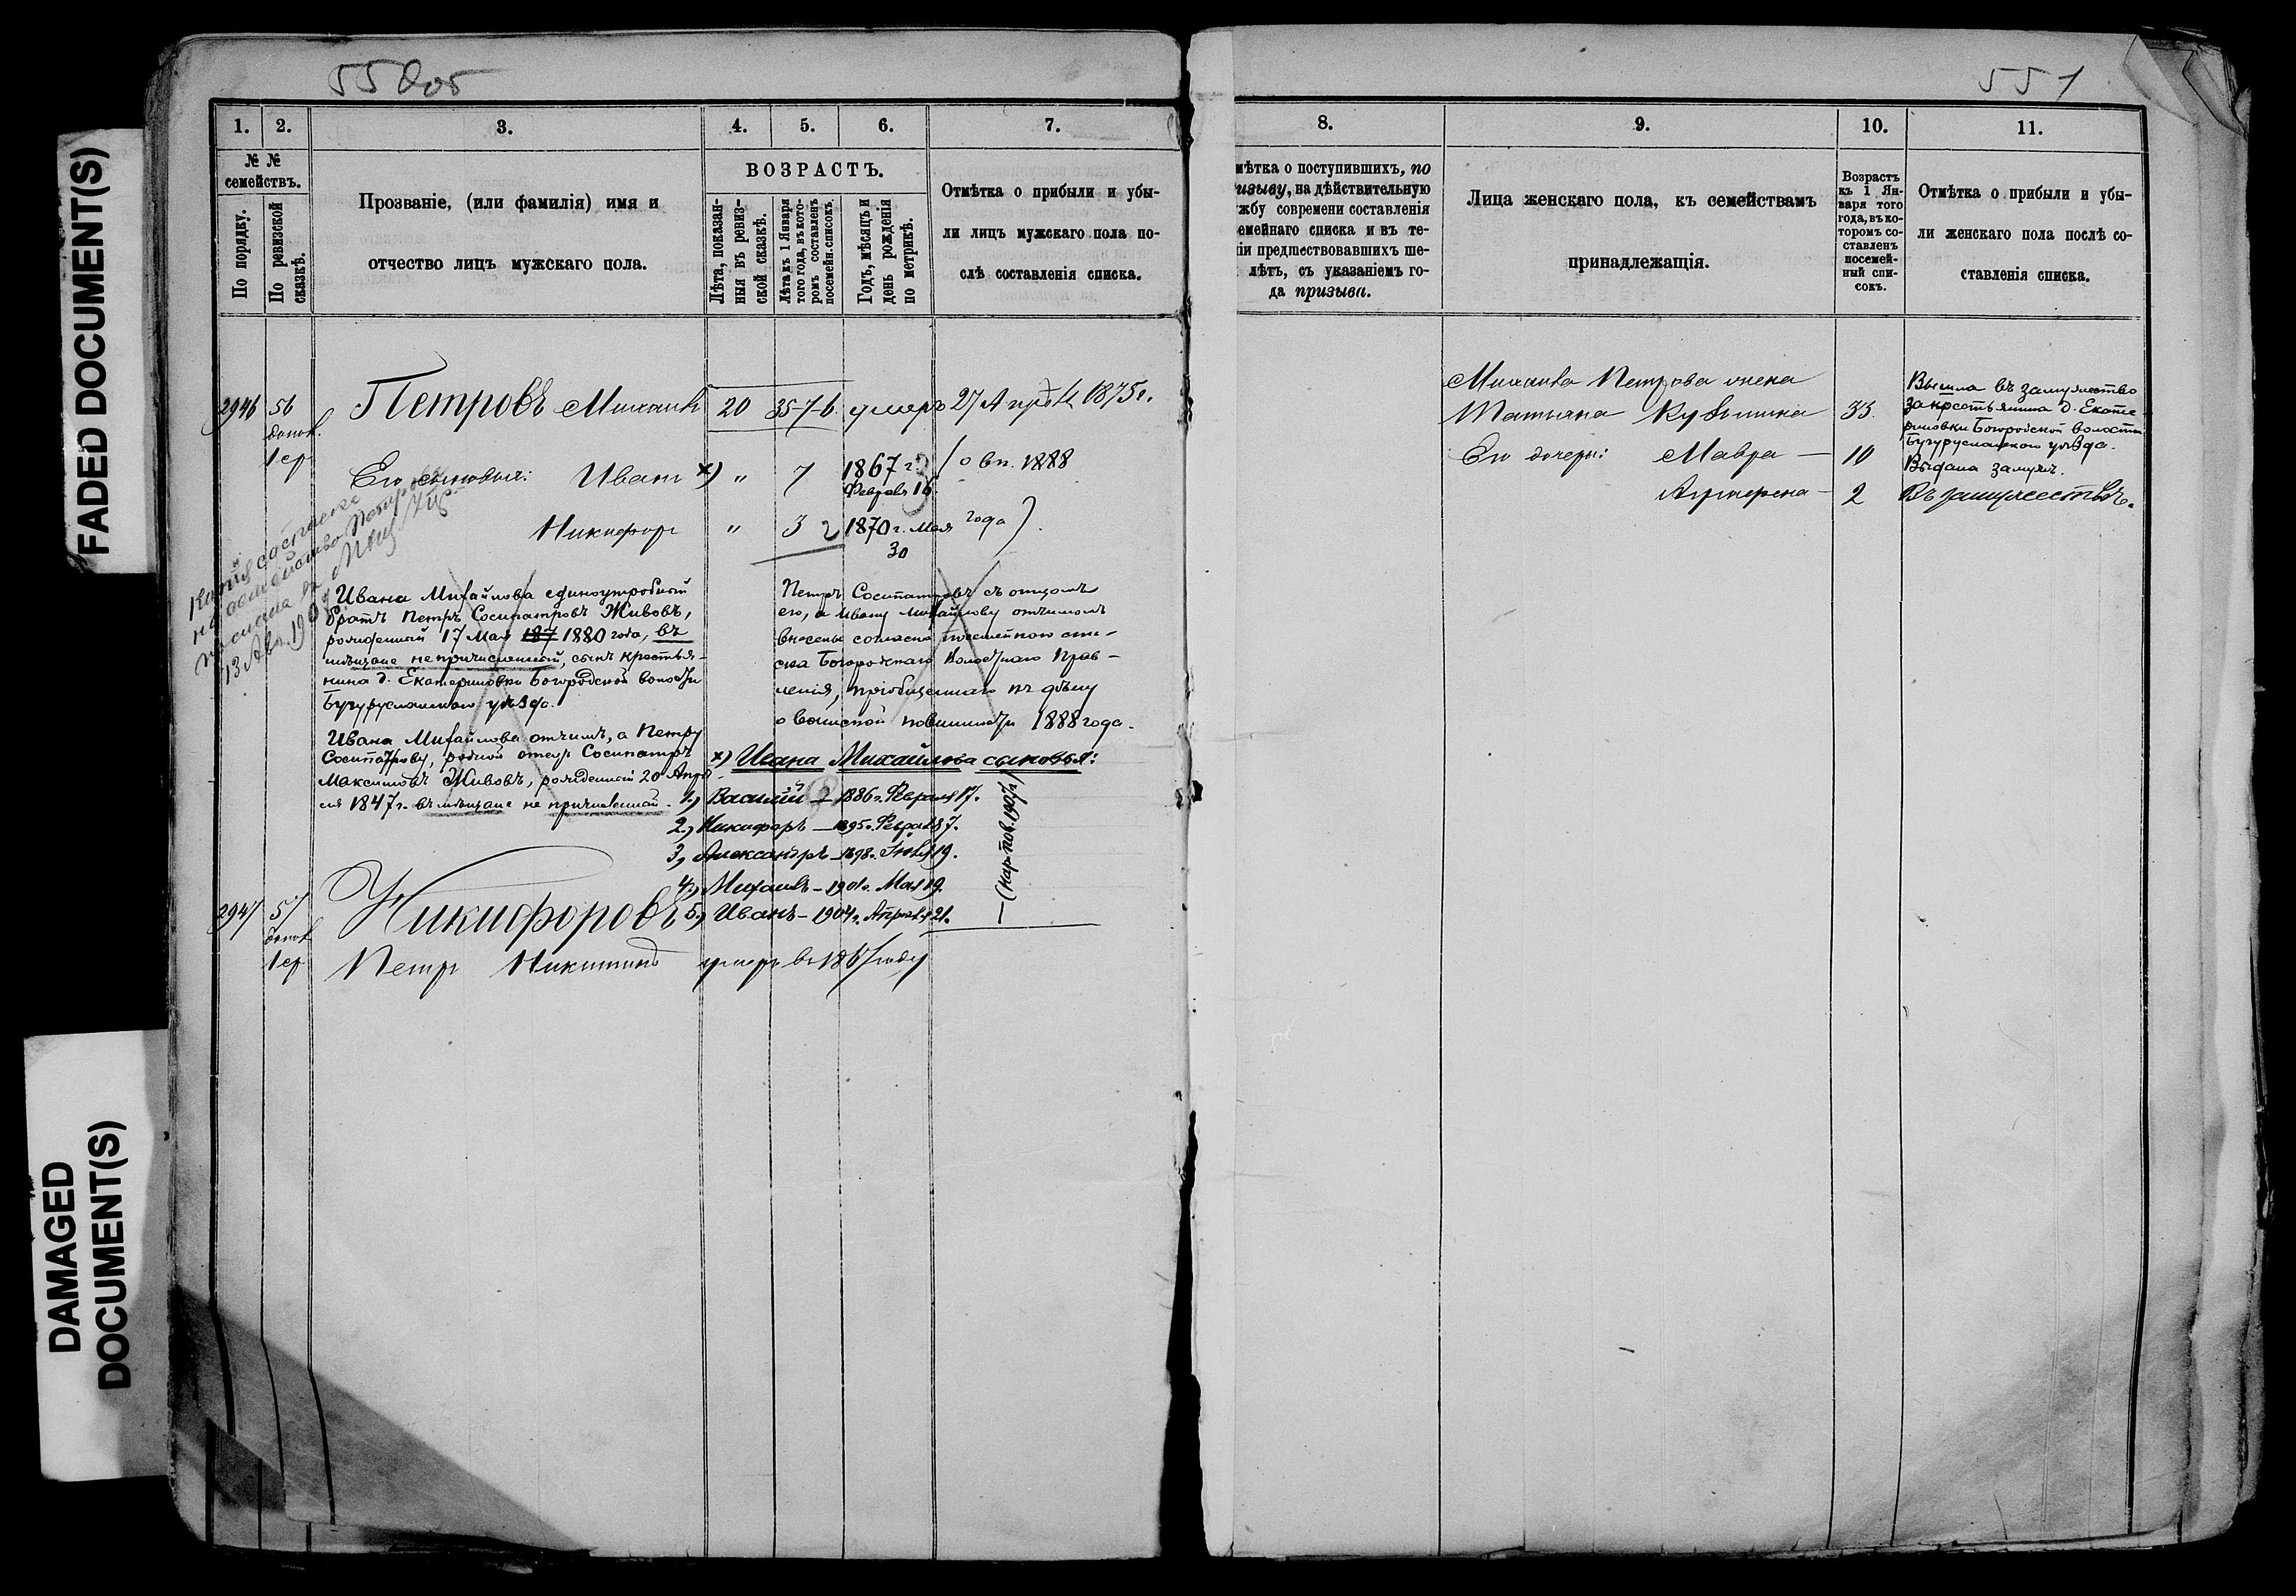 FADED DOCUMENT(S)
DAMAGED
DOCUMENT(S)
55 0об
1. 2. 3. 4. 5. 6. 7.
№ №
семействъ.
По порядку.
По ревизской
сказкѣ.
Прозваніе, (или фамилія) имя и
отчество лицъ мужскаго пола.
ВОЗРАСТЪ.
Лѣта, показан-
ныя въ ревиз-
ской сказкѣ.
Лѣта къ 1 Января
того года, въ кото-
ромъ составленъ
посемейн. списокъ.
Годъ, мѣсяцъ и
день рожденія
по метрикѣ.
Отмѣтка о прибыли и убы-
ли лицъ мужскаго пола по-
слѣ составленія списка.
2946 56 Петровъ Михаилъ 20 35-7-6. умеръ 27 Апрѣля 1875г.
допол.
1 ср
Его сыновья: Иванъ х) „ 7 1867 г. (о вп. 1888
Февраля 16.
Никифоръ „ 3 2 1870 г. Мая года).
30
Копія съ списка
на семейство Петрова
13 Авг. 190
Ивана Михайлова единоутробный
братъ Петръ Сосипатровъ Живовъ,
рожденный 17 Мая 187 1880 года, въ
мѣщане не причисленный, сынъ крестья-
нина д. Екатериновки Богородской волости
Бугурусланскаго уѣзда.
Ивана Михайлова отчимъ, а Петру
Сосипатрову, родной отецъ Сосипатръ
Максимовъ Живовъ, рожденный 20 Апрѣ-
ля 1847 г. въ мѣщане не причисленный.
Петръ Сосипатровъ съ отцомъ
его, а Ивану Михайлову отчимомъ
внесены согласно посемейнаго спи-
ска Богородскаго Волостнаго Прав-
ленія, пріобщеннаго къ дѣлу
о воинской повинности 1888 года.
х) Ивана Михайлова сыновья:
1.) Василій 2 - 1886 г. Февраля 17.
2.) Никифоръ — 1895 г. Февраля 7.
3) Александръ — 1898 г. Іюля 19.
4.) Михаилъ - 1901 г. Мая 19.
5.) Иванъ - 1904 г. Апрѣля 21.
— (кар. пов. 1907 г.)
2947 57 Никифоровъ
допол
1 ср Петръ Никитинъ умеръ въ 1867 году
551
8. 9. 10. 11.
мѣтка о поступившихъ, по
изыву, на дѣйствительную
жбу современи составленія
емейнаго списка и въ те-
іи предшествовавшихъ ше-
лѣтъ, съ указаніемъ го-
да призыва.
Лица женскаго пола, къ семействамъ
принадлежащія.
Возрастъ
къ 1 Ян-
варя того
года, въ ко-
торомъ со-
ставленъ
посемей-
ный спи-
сокъ.
Отмѣтка о прибыли и убы-
ли женскаго пола послѣ со-
ставленія списка.
Михаила Петрова жена
Татьяна Кузьмина 33.
Вышла въ замужество
за крестьянина д. Екате-
риновки Богородской волости
Бугурусланскаго уѣзда.
Его дочери: Мавра — 10 Выдана замужъ.
Агрипена — 2 Въ замужествѣ.